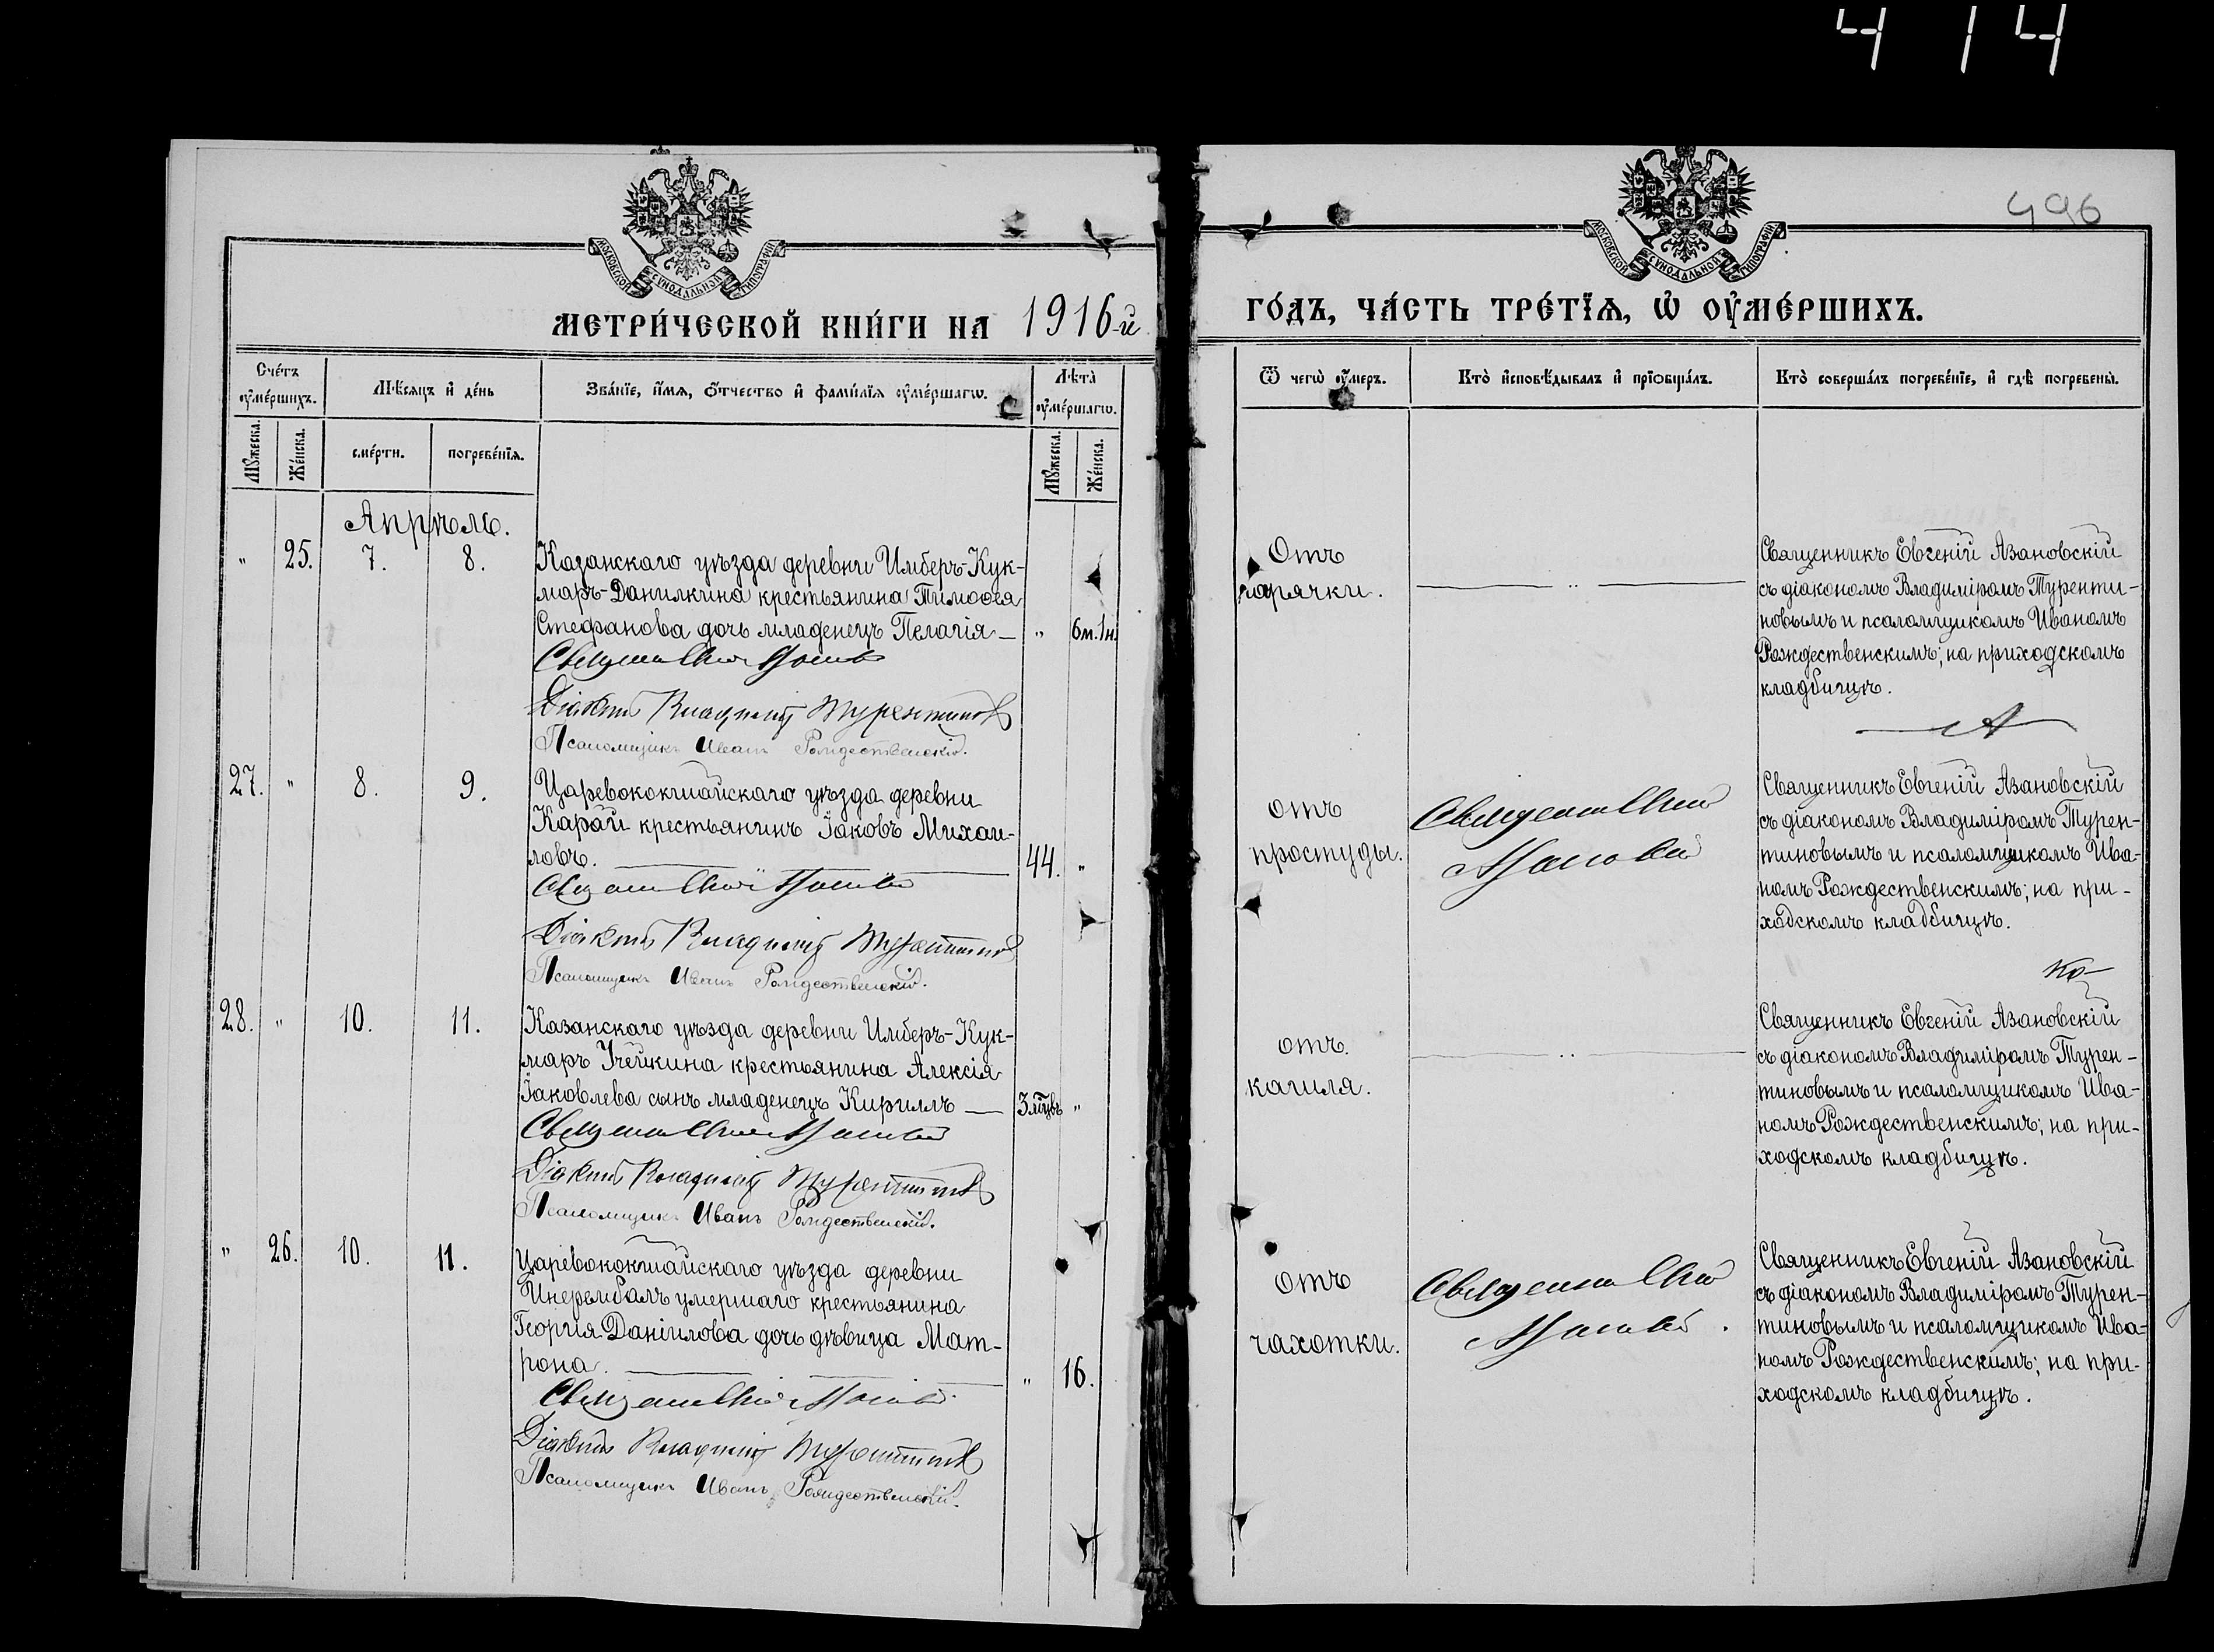 4 14
496
МОСКОВСКОЙ СѴНОДАЛЬНОЙ ТИПОГРАФІИ
МОСКОВСКОЙ СѴНОДАЛЬНОЙ ТИПОГРАФІИ
МЕТРИ́ЧЕСКОЙ КНИ́ГИ НА 1916-й
ГО́ДЪ, ЧА́СТЬ ТРЕ́ТЇѦ, Ѡ҆ ОУ҆МЕ́РШИХЪ.
Сче́тъ оу҆ме́ршихъ.
Мѣ́сяцъ и҆ де́нь
Зва́нїе, и҆́мѧ, ѻ҆́тчество и҆ фами́лїѧ оу҆ме́ршагѡ.
Лѣта̀ оу҆ме́ршагѡ.
Ѿ чегѡ̀ оу҆́меръ.
Кто̀ и҆сповѣ́дывалъ и҆ прїѡбща́лъ.
Кто̀ соверша́лъ погребе́нїе, и҆ гдѣ̀ погребены̀.
Мꙋ́жеска.
Же́нска.
сме́рти.
погребе́нїѧ.
Мꙋ́жеска.
Же́нска.
Апрѣль.
" 25. 7. 8.
Казанскаго уѣзда деревни Имберъ-Кук-
маръ-Данилкина крестьянина Тимоѳея
Стефанова дочь младенецъ Пелагія — " 6м. 1н.
Діаконъ Владиміръ Турентиновъ
Псаломщикъ Иванъ Рождественскій.
Отъ
горячки.
Священникъ Евгеній Азановскій
съ діакономъ Владиміромъ Туренти-
новымъ и псаломщикомъ Иваномъ
Рождественскимъ; на приходскомъ
кладбищѣ.
27. " 8. 9.
Царевококшайскаго уѣзда деревни
Карай крестьянинъ Іаковъ Михаи-
ловъ. 44. "
Діаконъ Владиміръ Турентиновъ
Псаломщикъ Иванъ Рождественскій.
отъ
простуды.
Священникъ Евгеній Азановскій
съ діакономъ Владиміромъ Турен-
тиновымъ и псаломщикомъ Ива-
номъ Рождественскимъ; на при-
ходскомъ кладбищѣ.
28. " 10. 11.
Казанскаго уѣзда деревни Имберъ-Кук-
маръ Учейкина крестьянина Алексія
Іаковлева сынъ младенецъ Кириллъ — 3 мцвъ "
Діаконъ Владиміръ Турентиновъ
Псаломщикъ Иванъ Рождественскій.
отъ
кашля.
Священникъ Евгеній Азановскій
съ діакономъ Владиміромъ Турен-
тиновымъ и псаломщикомъ Ива-
номъ Рождественскимъ; на при-
ходскомъ кладбищѣ.
" 26. 10. 11.
Царевококшайскаго уѣзда деревни
умершаго крестьянина
Георгія Даніилова дочь дѣвица Мат-
рона. " 16.
Діаконъ Владиміръ Турентиновъ
Псаломщикъ Иванъ Рождественскій.
отъ
чахотки.
Священникъ Евгеній Азановскій
съ діакономъ Владиміромъ Турен-
тиновымъ и псаломщикомъ Ива-
номъ Рождественскимъ; на при-
ходскомъ кладбищѣ.